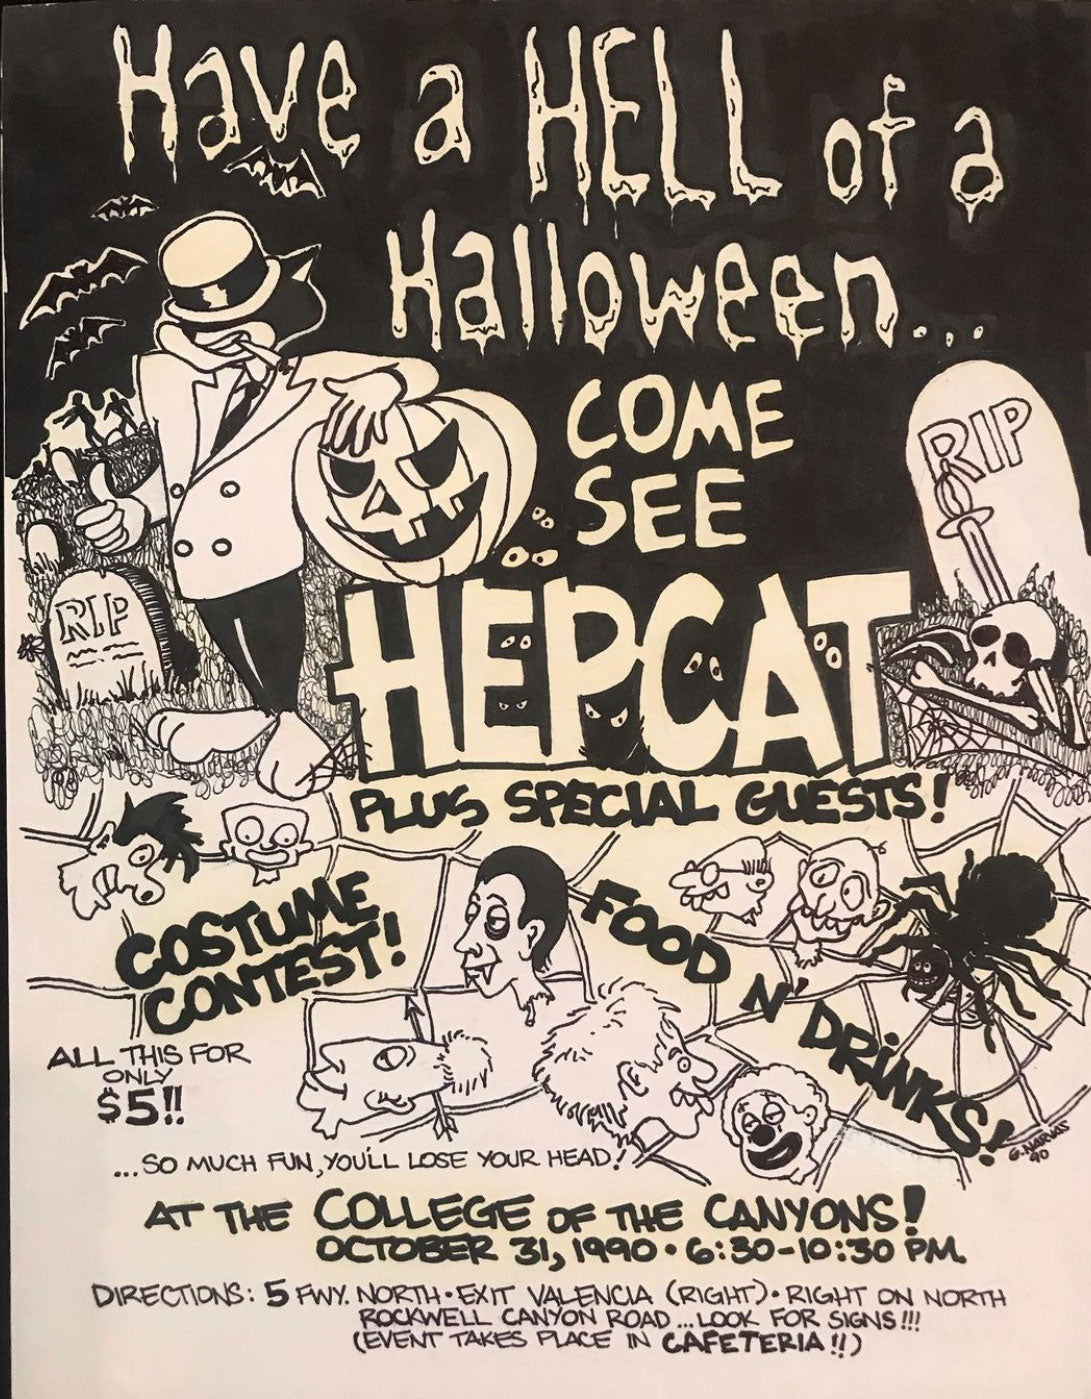 Have a HELL of a
Halloween...
COME
SEE
RIP
RIP
HEPCAT
PLUS SPECIAL GUESTS!
COSTUME
CONTEST!
FOOD N' DRINKS!
ALL THIS FOR
ONLY
$5!!
G. NARVAS
90
...SO MUCH FUN, YOU'LL LOSE YOUR HEAD!
AT THE COLLEGE OF THE CANYONS!
OCTOBER 31, 1990 • 6:30-10:30 PM.
DIRECTIONS: 5 FWY. NORTH • EXIT VALENCIA (RIGHT) • RIGHT ON NORTH
ROCKWELL CANYON ROAD ... LOOK FOR SIGNS!!!
(EVENT TAKES PLACE IN CAFETERIA!!)